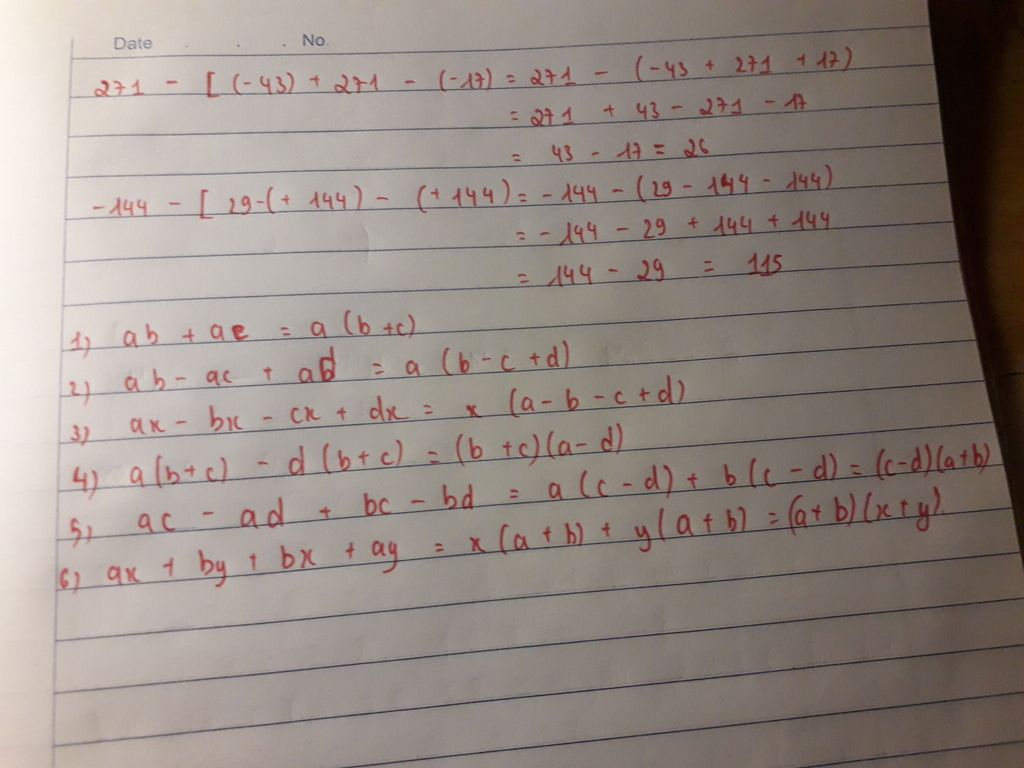 Date . . . No
271 - [ (-43) + 271 - (-17) = 271 - (-43 + 271 + 17)
= 271 + 43 - 271 - 17
= 43 - 17 = 26
-144 - [ 29-(+ 144) - (+ 144) = -144 - (29 - 144 - 144)
= -144 - 29 + 144 + 144
= 144 - 29 = 115
1) ab + ac = a (b+c)
2) ab - ac + ad = a (b-c+d)
3) ax - bx - cx + dx = x (a-b-c+d)
4) a(b+c) - d (b+c) = (b+c)(a-d)
5) ac - ad + bc - bd = a (c-d) + b (c-d) = (c-d)(a+b)
6) ax + by + bx + ay = x (a+b) + y (a+b) = (a+b)(x+y).